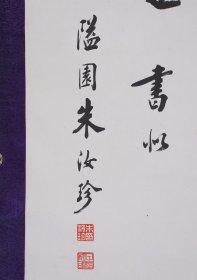 書似
隘園朱汝珍